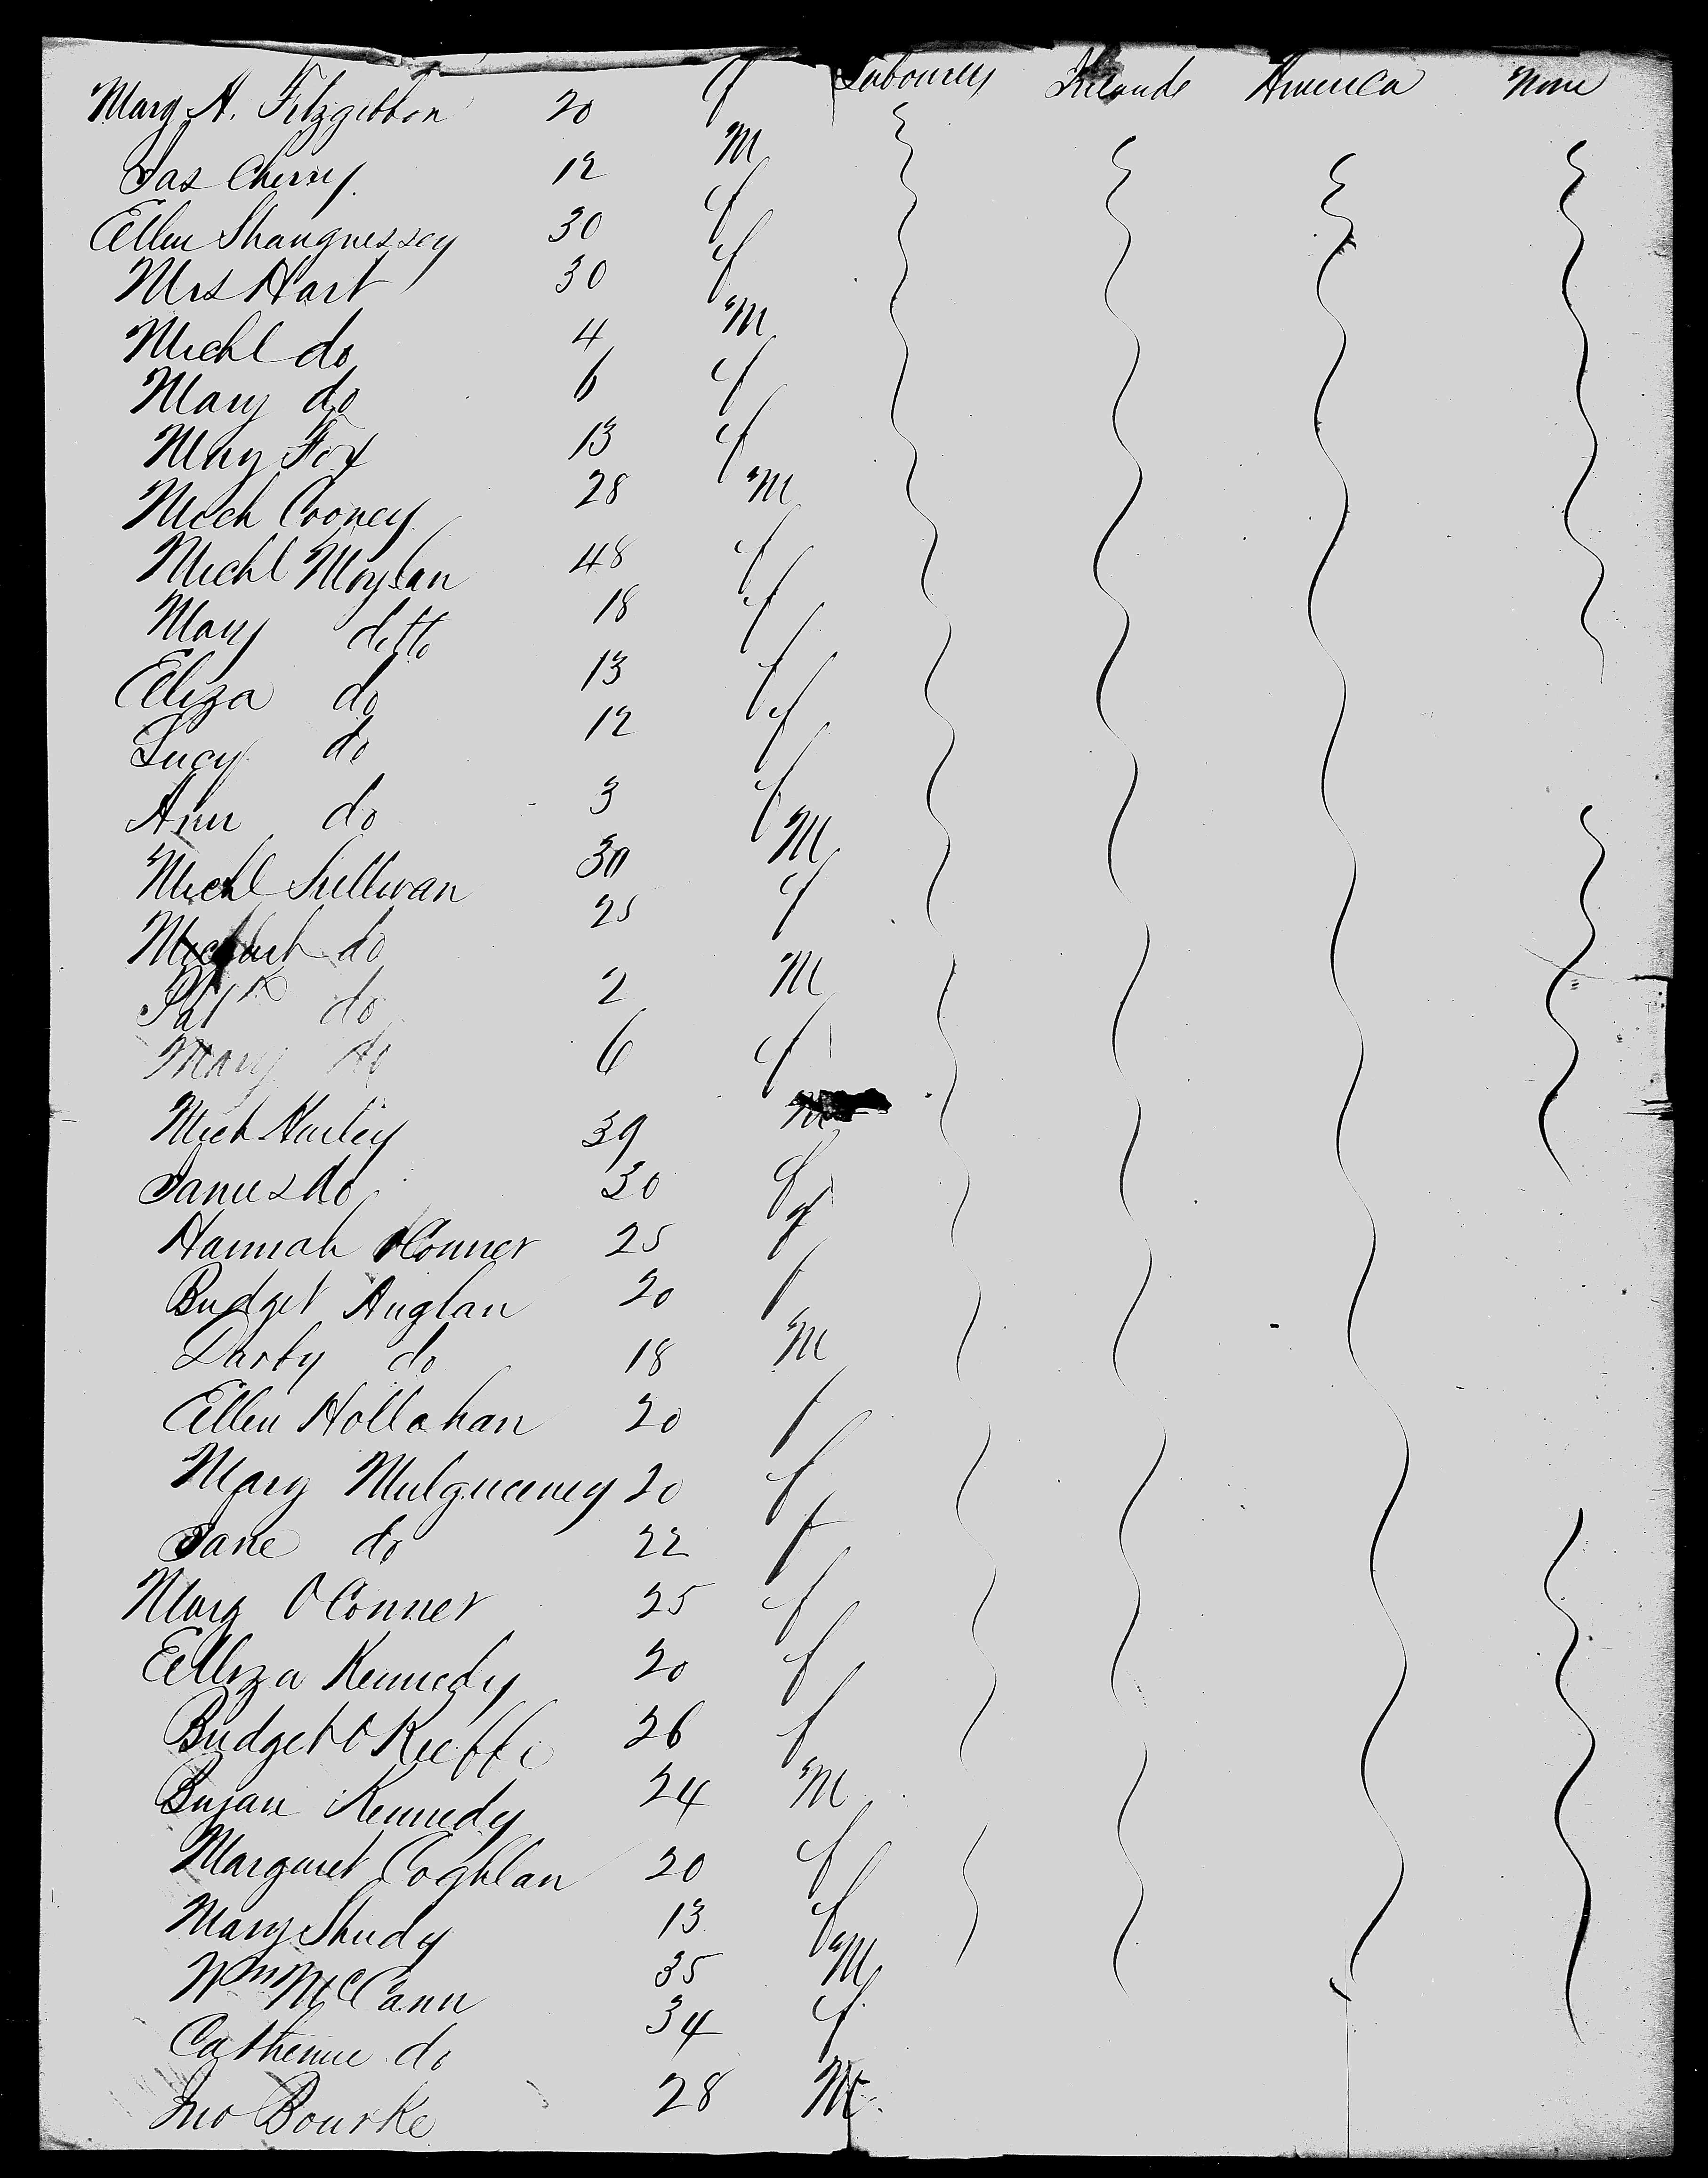 Mary A. Fitzgibbon 20 f Labourers Ireland America None
Jas Cherry 12 M
Ellen Shaugnessey 30 f
Mrs Hart 30 f
Michl do 4 M
Mary do 6 f
Mary Fox 13 f
Mich Cooney 28 M
Michl Moylan 48 f
Mary ditto 18 f
Eliza do 13 f
Lucy do 12 f
Ann do 3 f
Michl Sullivan 30 M
do 25 f
Patk do 2 M
Mary do 6 f
Mich Hurley 39 M
James do 30 f
Hannah OConner 25 f
Bridget Anglan 20 f
Darby do 18 M
Ellen Hollahan 20 f
Mary Mulqueeney 20 f
Jane do 22 f
Mary OConner 25 f
Elliza Kennedy 20 f
Bridget O Kieffe 26 f
Bryan Kennedy 24 M
Margaret Coghlan 20 f
Mary Shudy 13 f
Wm McCann 35 M
Catherine do 34 f
Jno Bourke 28 M